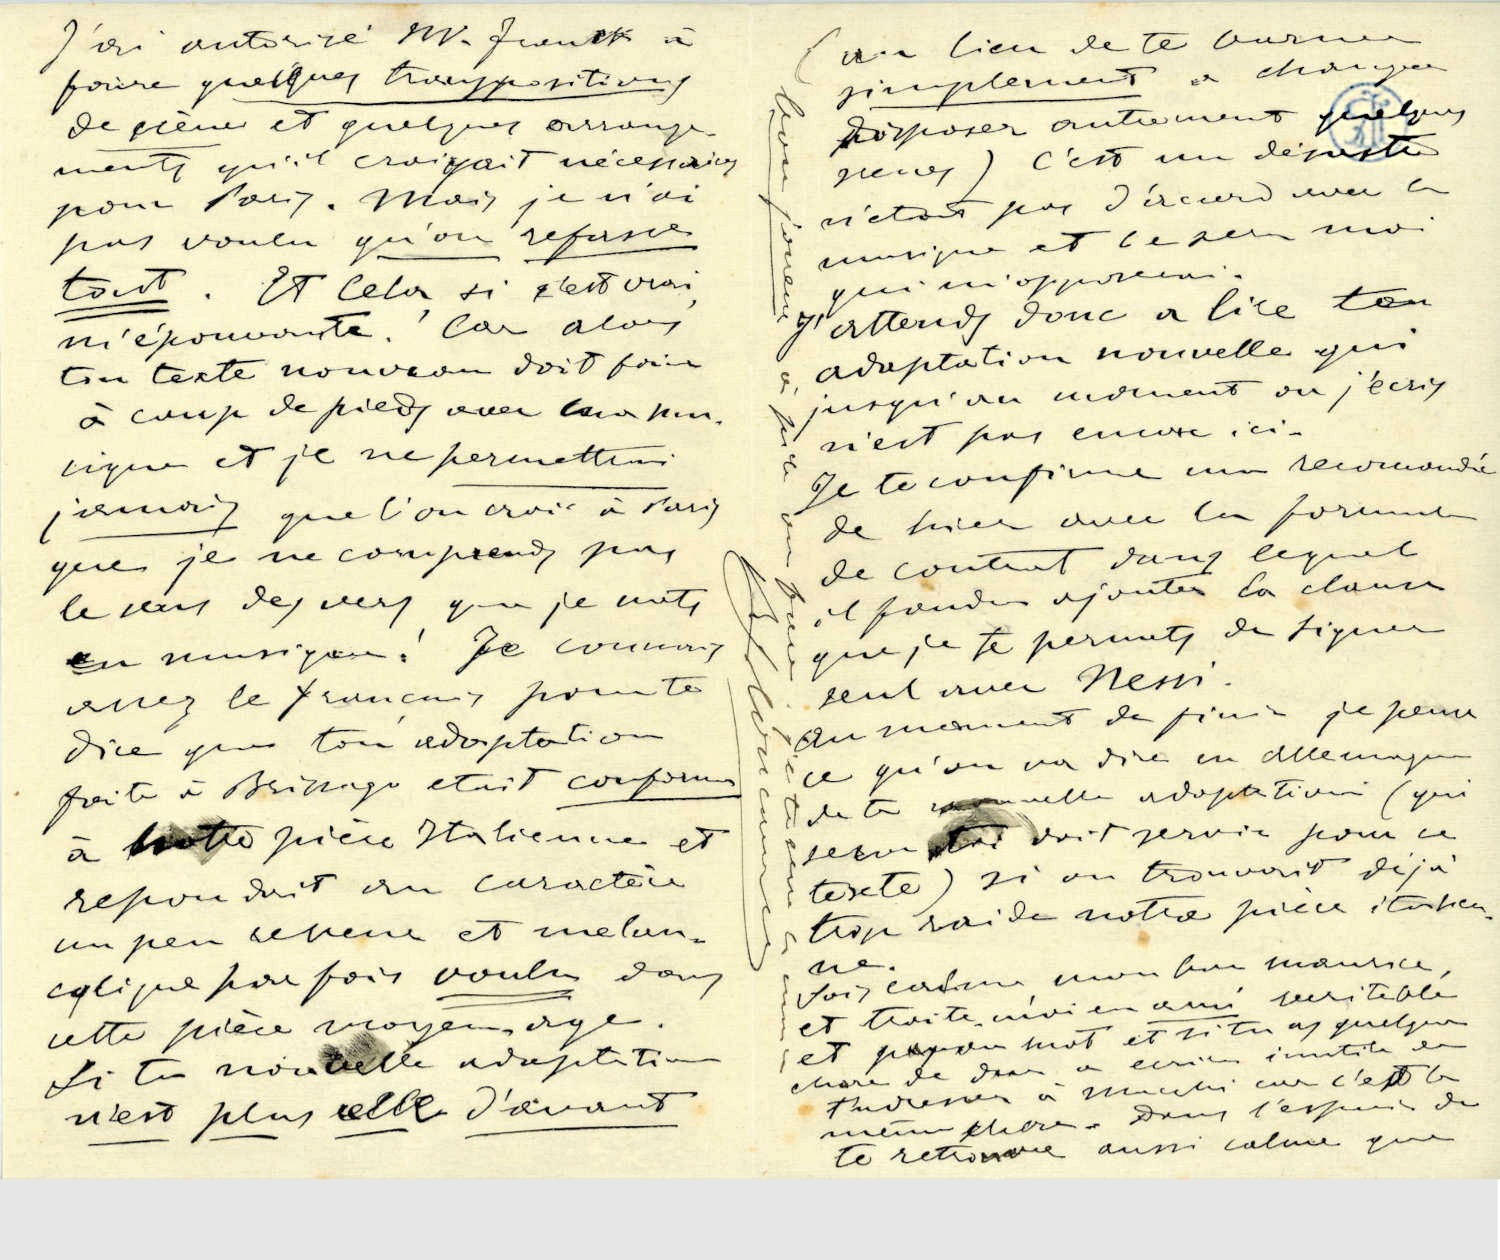 J'ai autorisé M. Franck à
faire quelques transpositions
de scène et quelques arrange-
ments qu'il croyait nécessaires
pour Paris. Mais je n'ai
pas voulu qu'on refasse
tout. Et Cela, si c'est vrai,
m'épouvante! Car alors
ton texte nouveau doit faire
à coup de pieds avec ma mu-
sique et je ne permettrai
jamais que l'on croie à Paris
que je ne comprends pas
le sens des vers que je mets
en musique! Je connais
assez le français pour te
dire que ton adaptation
faite à Brissago etait conforme
à notre pièce Italienne et
repondait au caractère
un peu et melan-
colique parfois voulu dans
cette pièce moyen-age.
Si ta nouvelle adaptation
n'est plus celle d'avant
(au lieu de te borner
simplement a changer
disposer autrement quelques
scenes) C'est un désastre
n'etant pas d'accord avec la
musique et ce sera moi
qui m'opposerai.
J'attends donc a lire ton
adaptation nouvelle qui
jusqu'au moment ou j'écris
n'est pas encore ici.
Je te confirme ma recomandée
de hier avec la formule
de contrat dans lequel
il faudra ajouter la clause
que je te permets de signer
seul avec Nessi.
Au moment de finir je pense
ce qu'on va dire en Allemagne
de ta nouvelle adaptation (qui
doit servir pour ce
texte) si on trouvait déjà
trop raide notre pièce italien-
ne.
Sois calme mon bon maurice,
et traite-moi en ami veritable
et pas un mot et si tu as quelque
chose de a ecrire inutile de
t'adresser à car c'est la
même chose. Dans l'espoir de
te retrouver aussi calme que
bon joueur
Leoncavallo